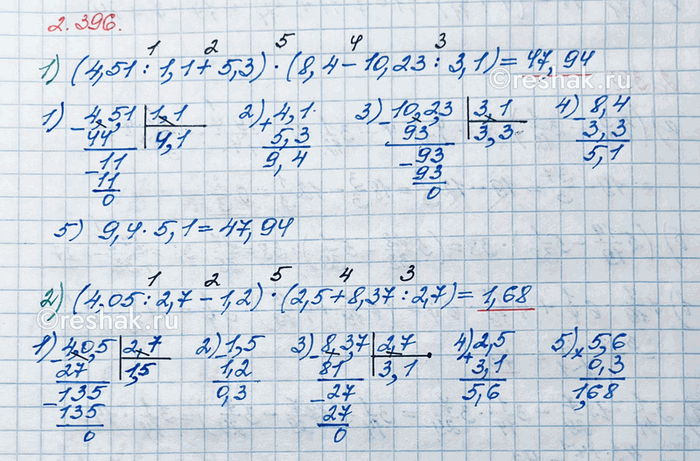 2.396.
1 2 5 4 3
1) (4,51 : 1,1 + 5,3) · (8,4 − 10,23 : 3,1) = 47,94
1) − 4,51 | 1,1 2) + 4,1 3) − 10,23 | 3,1 4) − 8,4
44 4,1 5,3 93 3,3 3,3
− 11 9,4 − 93 5,1
11 93
0 0
5) 9,4 · 5,1 = 47,94
1 2 5 4 3
2) (4,05 : 2,7 − 1,2) · (2,5 + 8,37 : 2,7) = 1,68
1) − 4,05 | 2,7 2) − 1,5 3) − 8,37 | 2,7 4) + 2,5 5) × 5,6
27 1,5 1,2 81 3,1 3,1 0,3
− 135 0,3 − 27 5,6 1,68
135 27
0 0
©reshak.ru
©reshak.ru
©reshak.ru